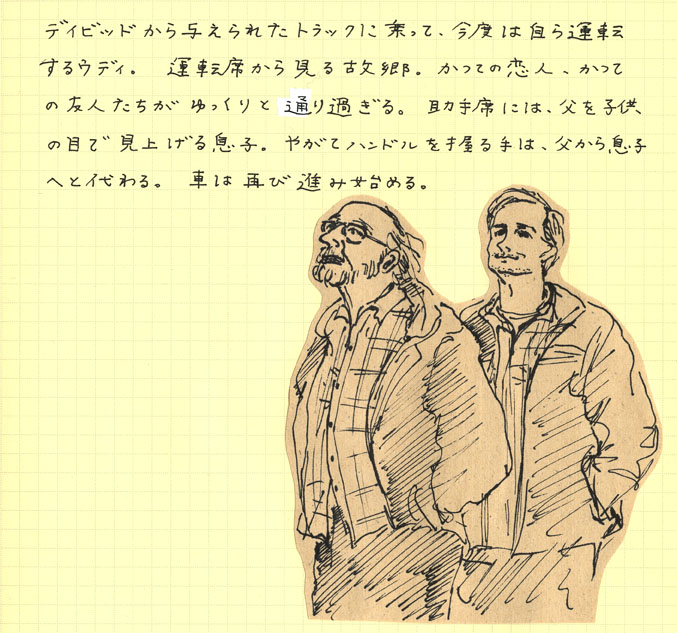 デイビッドから与えられたトラックに乗って、今度は自ら運転
するウディ。 運転席から見る故郷。かつての恋人、かつて
の友人たちがゆっくりと通り過ぎる。 助手席には、父を子供
の目で見上げる息子。やがてハンドルを握る手は、父から息子
へと代わる。 車は再び進み始める。